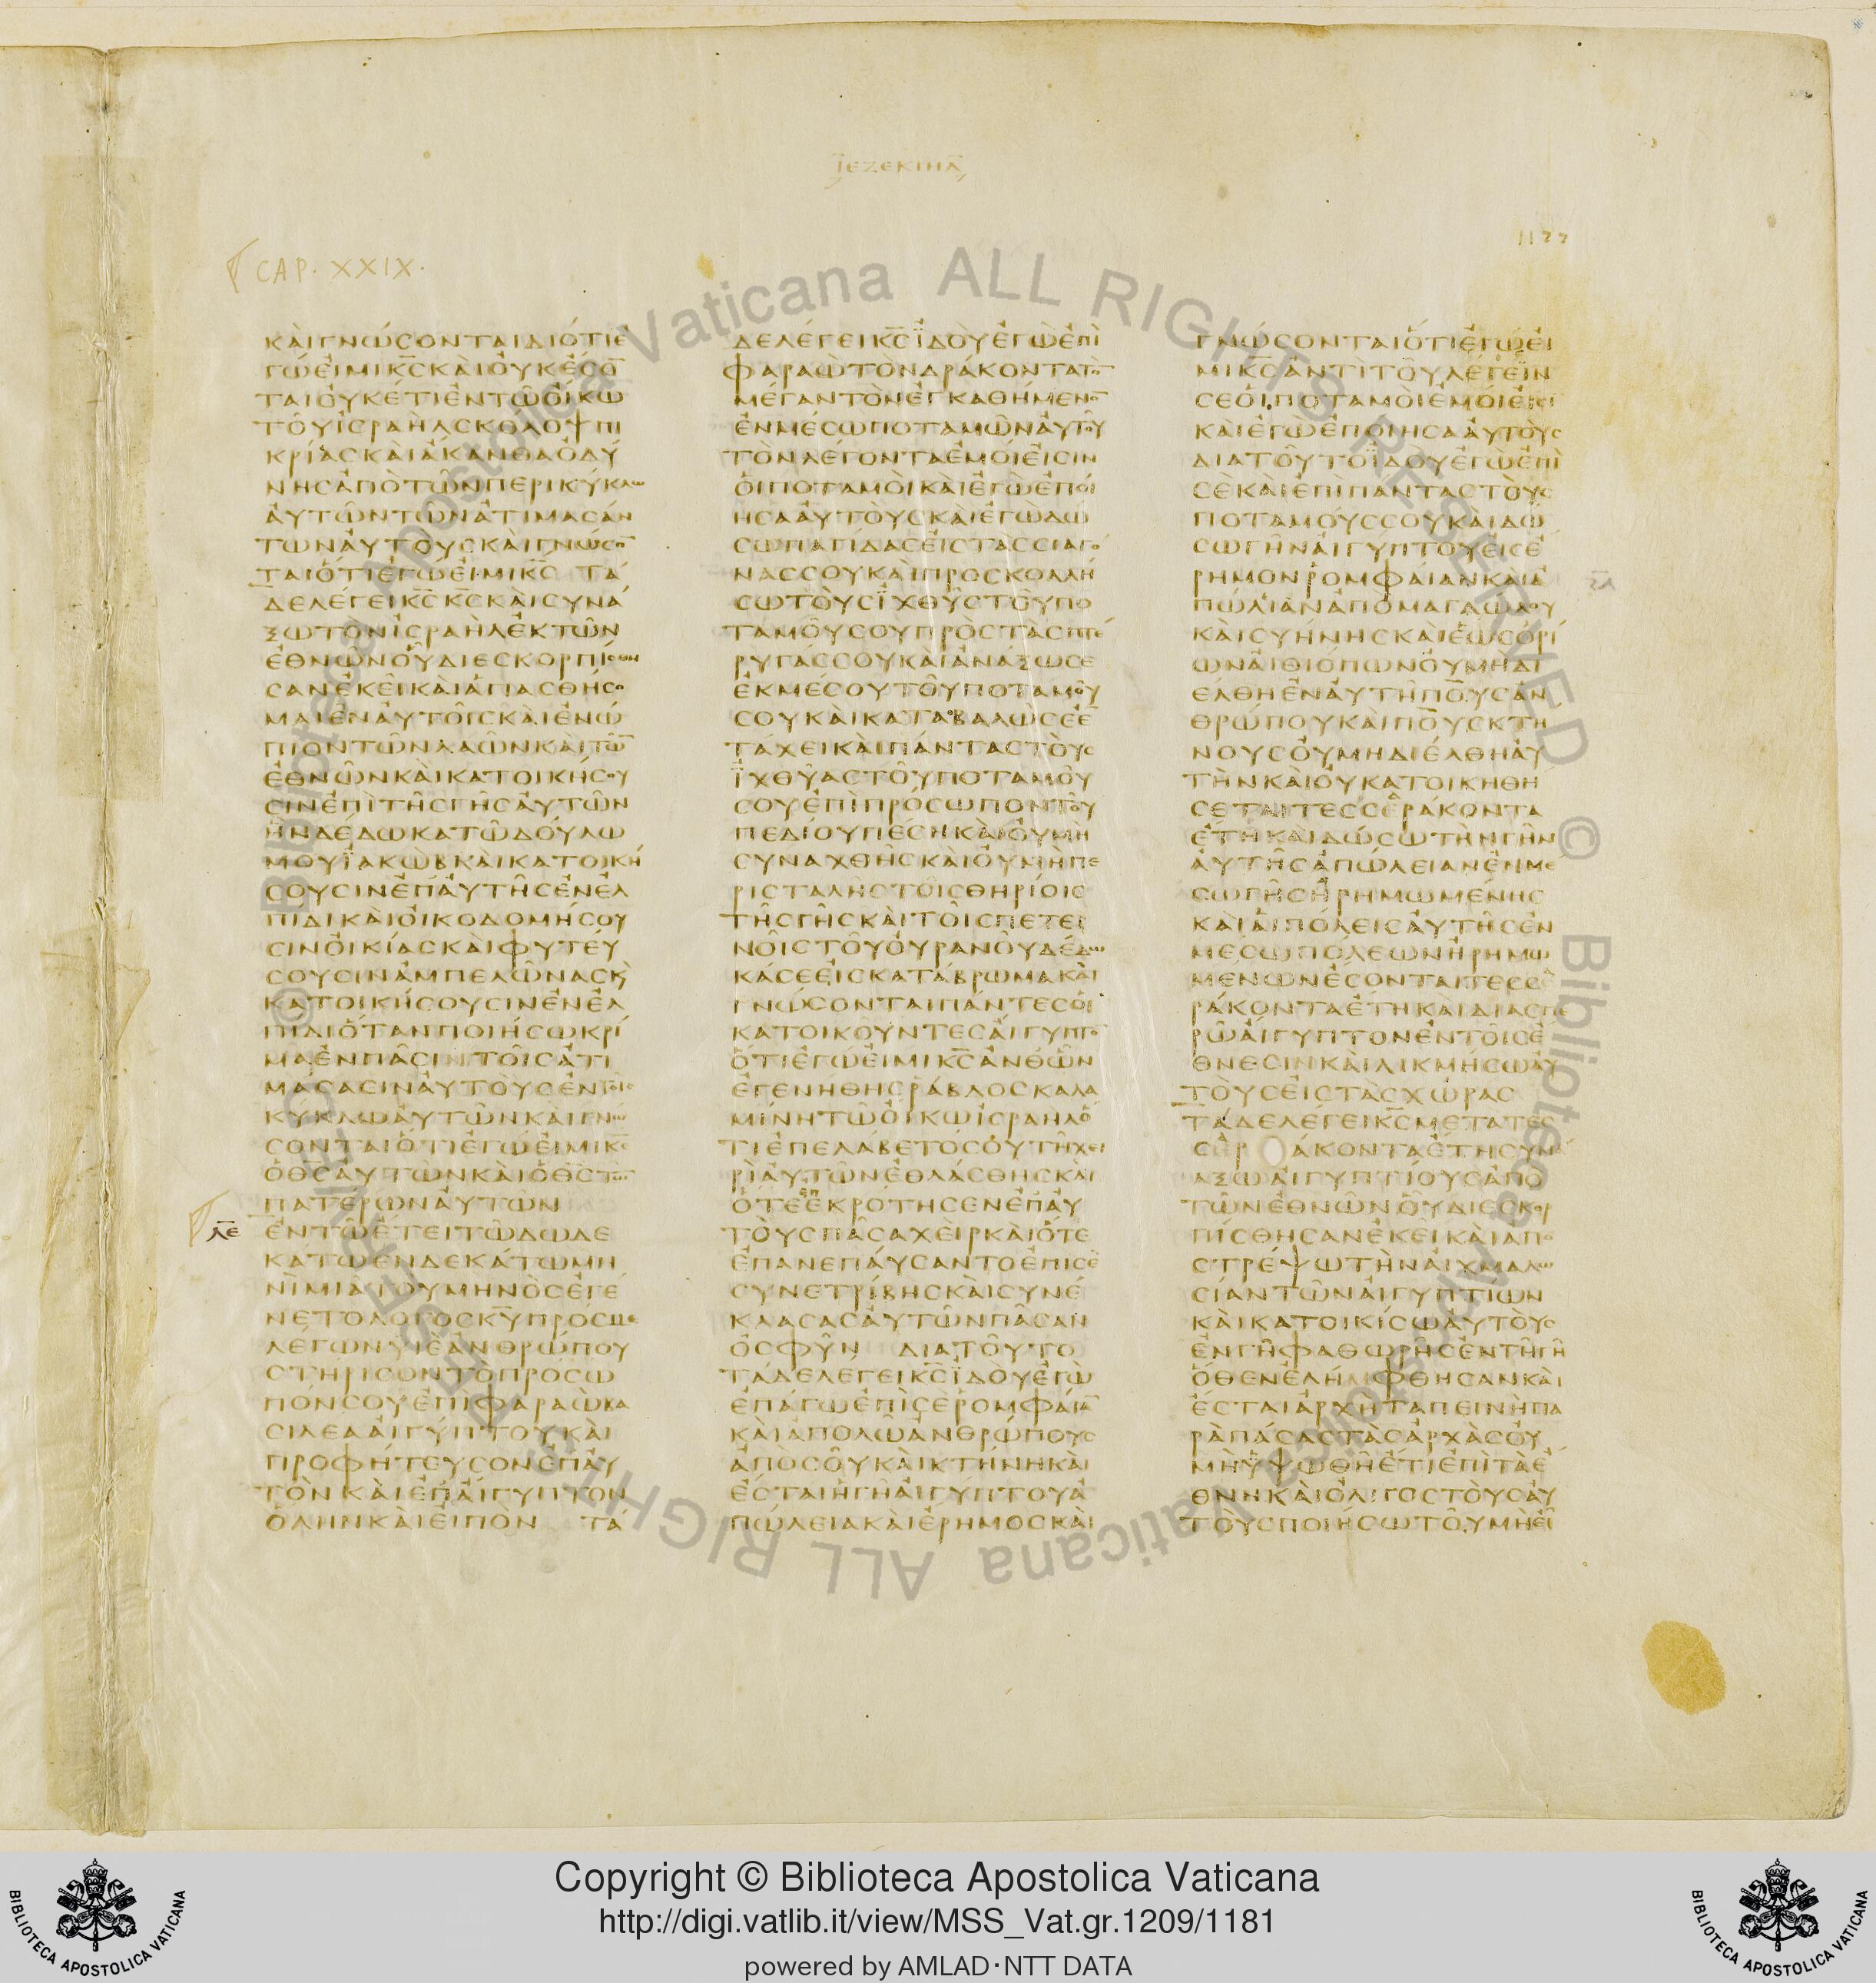 ΙΕΖΕΚΙΗΛ
1177
CAP. XXIX.
ΚΑΙΓΝΩΣΟΝΤΑΙΔΙΟΤΙΕ
ΓΩΕΙΜΙΚ̅Σ̅ΚΑΙΟΥΚΕΣΟ̅
ΤΑΙΟΥΚΕΤΙΕΝΤΩΟΙΚΩ
ΤΟΥΙΣΡΑΗΛΣΚΟΛΟΨΠΙ
ΚΡΙΑΣΚΑΙΑΚΑΝΘΑΟΔΥ
ΝΗΣΑΠΟΤΩΝΠΕΡΙΚΥΚΛΩ
ΑΥΤΩΝΤΩΝΑΤΙΜΑΣΑΝ
ΤΩΝΑΥΤΟΥΣΚΑΙΓΝΩΣΟ̅
ΤΑΙΟΤΙΕΓΩΕΙΜΙΚ̅Σ̅ ΤΑ
ΔΕΛΕΓΕΙΚ̅Σ̅Κ̅Σ̅ΚΑΙΣΥΝΑ
ΞΩΤΟΝΙΣΡΑΗΛΕΚΤΩΝ
ΕΘΝΩΝΟΥΔΙΕΣΚΟΡΠΙΣΘΗ
ΣΑΝΕΚΕΙΚΑΙΑΓΙΑΣΘΗΣΟ
ΜΑΙΕΝΑΥΤΟΙΣΚΑΙΕΝΩ
ΠΙΟΝΤΩΝΛΑΩΝΚΑΙΤΩ̅
ΕΘΝΩΝΚΑΙΚΑΤΟΙΚΗΣΟΥ
ΣΙΝΕΠΙΤΗΣΓΗΣΑΥΤΩΝ
ΗΝΔΕΔΩΚΑΤΩΔΟΥΛΩ
ΜΟΥΪΑΚΩΒΚΑΙΚΑΤΟΙΚΗ
ΣΟΥΣΙΝΕΠΑΥΤΗΣΕΝΕΛ
ΠΙΔΙΚΑΙΟΙΚΟΔΟΜΗΣΟΥ
ΣΙΝΟΙΚΙΑΣΚΑΙΦΥΤΕΥ
ΣΟΥΣΙΝΑΜΠΕΛΩΝΑΣΚ
ΚΑΤΟΙΚΗΣΟΥΣΙΝΕΝΕΛ
ΠΙΔΙΟΤΑΝΠΟΙΗΣΩΚΡΙ
ΜΑΕΝΠΑΣΙΝΤΟΙΣΑΤΙ
ΜΑΣΑΣΙΝΑΥΤΟΥΣΕΝΤΟΙΣ
ΚΥΚΛΩΑΥΤΩΝΚΑΙΓΝΩ
ΣΟΝΤΑΙΟΤΙΕΓΩΕΙΜΙΚ̅Σ̅
ΟΘ̅Σ̅ΑΥΤΩΝΚΑΙΟΘ̅Σ̅ΤΩ̅
ΠΑΤΕΡΩΝΑΥΤΩΝ
ΛΕ
ΕΝΤΩΕΤΕΙΤΩΔΩΔΕ
ΚΑΤΩΕΝΔΕΚΑΤΩΜΗ
ΝΙΜΙΑΤΟΥΜΗΝΟΣΕΓΕ
ΝΕΤΟΛΟΓΟΣΚ̅Υ̅ΠΡΟΣΜΕ
ΛΕΓΩΝΥΙΕΑΝΘΡΩΠΟΥ
ΣΤΗΡΙΣΟΝΤΟΠΡΟΣΩ
ΠΟΝΣΟΥΕΠΙΦΑΡΑΩΒΑ
ΣΙΛΕΑΑΙΓΥΠΤΟΥΚΑΙ
ΠΡΟΦΗΤΕΥΣΟΝΕΠΑΥ
ΤΟΝΚΑΙΕΠΑΙΓΥΠΤΟΝ
ΟΛΗΝΚΑΙΕΙΠΟΝ ΤΑ
ΔΕΛΕΓΕΙΚ̅Σ̅ΪΔΟΥΕΓΩΕΠΙ
ΦΑΡΑΩΤΟΝΔΡΑΚΟΝΤΑΤΟ̅
ΜΕΓΑΝΤΟΝΕΓΚΑΘΗΜΕΝΟ̅
ΕΝΜΕΣΩΠΟΤΑΜΩΝΑΥΤΟΥ
ΤΟΝΛΕΓΟΝΤΑΕΜΟΙΕΙΣΙΝ
ΟΙΠΟΤΑΜΟΙΚΑΙΕΓΩΕΠΟΙ
ΗΣΑΑΥΤΟΥΣΚΑΙΕΓΩΔΩ
ΣΩΠΑΓΙΔΑΣΕΙΣΤΑΣΣΙΑΓΟ
ΝΑΣΣΟΥΚΑΙΠΡΟΣΚΟΛΛΗ
ΣΩΤΟΥΣΪΧΘΥΣΤΟΥΠΟ
ΤΑΜΟΥΣΟΥΠΡΟΣΤΑΣΠΤΕ
ΡΥΓΑΣΣΟΥΚΑΙΑΝΑΞΩΣΕ
ΕΚΜΕΣΟΥΤΟΥΠΟΤΑΜΟΥ
ΣΟΥΚΑΙΚΑΤΑΒΑΛΩΣΕΕ̅
ΤΑΧΕΙΚΑΙΠΑΝΤΑΣΤΟΥΣ
ΪΧΘΥΑΣΤΟΥΠΟΤΑΜΟΥ
ΣΟΥΕΠΙΠΡΟΣΩΠΟΝΤΟΥ
ΠΕΔΙΟΥΠΕΣΗΚΑΙΟΥΜΗ
ΣΥΝΑΧΘΗΣΚΑΙΟΥΜΗΠΕ
ΡΙΣΤΑΛΗΣΤΟΙΣΘΗΡΙΟΙΣ
ΤΗΣΓΗΣΚΑΙΤΟΙΣΠΕΤΕΙ
ΝΟΙΣΤΟΥΟΥΡΑΝΟΥΔΕΔΩ
ΚΑΣΕΕΙΣΚΑΤΑΒΡΩΜΑΚΑΙ
ΓΝΩΣΟΝΤΑΙΠΑΝΤΕΣΟΙ
ΚΑΤΟΙΚΟΥΝΤΕΣΑΙΓΥΠΤΟ̅
ΟΤΙΕΓΩΕΙΜΙΚ̅Σ̅ΑΝΘΩΝ
ΕΓΕΝΗΘΗΣΡΑΒΔΟΣΚΑΛΑ
ΜΙΝΗΤΩΟΙΚΩΙΣΡΑΗΛΟ
ΤΙΕΠΕΛΑΒΕΤΟΣΟΥΤΗΧΕΙ
ΡΙΑΥΤΩΝΕΘΛΑΣΘΗΣΚΑΙ
ΟΤΕΕΚΡΟΤΗΣΕΝΕΠΑΥ
ΤΟΥΣΠΑΣΑΧΕΙΡΚΑΙΟΤΕ
ΕΠΑΝΕΠΑΥΣΑΝΤΟΕΠΙΣΕ
ΣΥΝΕΤΡΙΒΗΣΚΑΙΣΥΝΕ
ΚΛΑΣΑΣΑΥΤΩΝΠΑΣΑΝ
ΟΣΦΥΝ ΔΙΑΤΟΥΤΟ
ΤΑΔΕΛΕΓΕΙΚ̅Σ̅ΪΔΟΥΕΓΩ
ΕΠΑΓΩΕΠΙΣΕΡΟΜΦΑΙΑ̅
ΚΑΙΑΠΟΛΩΑΝΘΡΩΠΟΥΣ
ΑΠΟΣΟΥΚΑΙΚΤΗΝΗΚΑΙ
ΕΣΤΑΙΗΓΗΑΙΓΥΠΤΟΥΑ
ΠΩΛΕΙΑΚΑΙΕΡΗΜΟΣΚΑΙ
ΓΝΩΣΟΝΤΑΙΟΤΙΕΓΩΕΙ
ΜΙΚ̅Σ̅ΑΝΤΙΤΟΥΛΕΓΕΙΝ
ΣΕΟΙΠΟΤΑΜΟΙΕΜΟΙΕΙΣΙ
ΚΑΙΕΓΩΕΠΟΙΗΣΑΑΥΤΟΥΣ
ΔΙΑΤΟΥΤΟΪΔΟΥΕΓΩΕΠΙ
ΣΕΚΑΙΕΠΙΠΑΝΤΑΣΤΟΥΣ
ΠΟΤΑΜΟΥΣΣΟΥΚΑΙΔΩ
ΣΩΓΗΝΑΙΓΥΠΤΟΥΕΙΣΕ
ΡΗΜΟΝΡΟΜΦΑΙΑΝΚΑΙΑ
ΠΩΛΙΑΝΑΠΟΜΑΓΔΩΛΟΥ
ΚΑΙΣΥΗΝΗΣΚΑΙΕΩΣΟΡΙ
ΩΝΑΙΘΙΟΠΩΝΟΥΜΗΔΙ
ΕΛΘΗΕΝΑΥΤΗΠΟΥΣΑΝ
ΘΡΩΠΟΥΚΑΙΠΟΥΣΚΤΗ
ΝΟΥΣΟΥΜΗΔΙΕΛΘΗΑΥ
ΤΗΝΚΑΙΟΥΚΑΤΟΙΚΗΘΗ
ΣΕΤΑΙΤΕΣΣΕΡΑΚΟΝΤΑ
ΕΤΗΚΑΙΔΩΣΩΤΗΝΓΗΝ
ΑΥΤΗΣΑΠΩΛΕΙΑΝΕΝΜΕ
ΣΩΓΗΣΗΡΗΜΩΜΕΝΗΣ
ΚΑΙΑΙΠΟΛΕΙΣΑΥΤΗΣΕΝ
ΜΕΣΩΠΟΛΕΩΝΗΡΗΜΩ
ΜΕΝΩΝΕΣΟΝΤΑΙΤΕΣΣΕ
ΡΑΚΟΝΤΑΕΤΗΚΑΙΔΙΑΣΠΕ
ΡΩΑΙΓΥΠΤΟΝΕΝΤΟΙΣΕ
ΘΝΕΣΙΝΚΑΙΛΙΚΜΗΣΩΑΥ
ΤΟΥΣΕΙΣΤΑΣΧΩΡΑΣ
ΤΑΔΕΛΕΓΕΙΚ̅Σ̅ΜΕΤΑΤΕΣ
ΣΕΡΑΚΟΝΤΑΕΤΗΣΥΝ
ΑΞΩΑΙΓΥΠΤΙΟΥΣΑΠΟ
ΤΩΝΕΘΝΩΝΟΥΔΙΕΣΚΟΡ
ΠΙΣΘΗΣΑΝΕΚΕΙΚΑΙΑΠΟ
ΣΤΡΕΨΩΤΗΝΑΙΧΜΑΛΩ
ΣΙΑΝΤΩΝΑΙΓΥΠΤΙΩΝ
ΚΑΙΚΑΤΟΙΚΙΣΩΑΥΤΟΥΣ
ΕΝΓΗΦΑΘΩΡΗΣΕΝΤΗΓΗ
ΟΘΕΝΕΛΗΜΦΘΗΣΑΝΚΑΙ
ΕΣΤΑΙΑΡΧΗΤΑΠΕΙΝΗΠΑ
ΡΑΠΑΣΑΣΤΑΣΑΡΧΑΣΟΥ
ΜΗΥΨΩΘΗΕΤΙΕΠΙΤΑΕ
ΘΝΗΚΑΙΟΛΙΓΟΣΤΟΥΣΑΥ
ΤΟΥΣΠΟΙΗΣΩΤΟΥΜΗΕΙ
© Biblioteca Apostolica Vaticana ALL RIGHTS RESERVED
© Biblioteca Apostolica Vaticana ALL RIGHTS RESERVED
Copyright © Biblioteca Apostolica Vaticana
http://digi.vatlib.it/view/MSS_Vat.gr.1209/1181
powered by AMLAD·NTT DATA
BIBLIOTECA APOSTOLICA VATICANA
BIBLIOTECA APOSTOLICA VATICANA